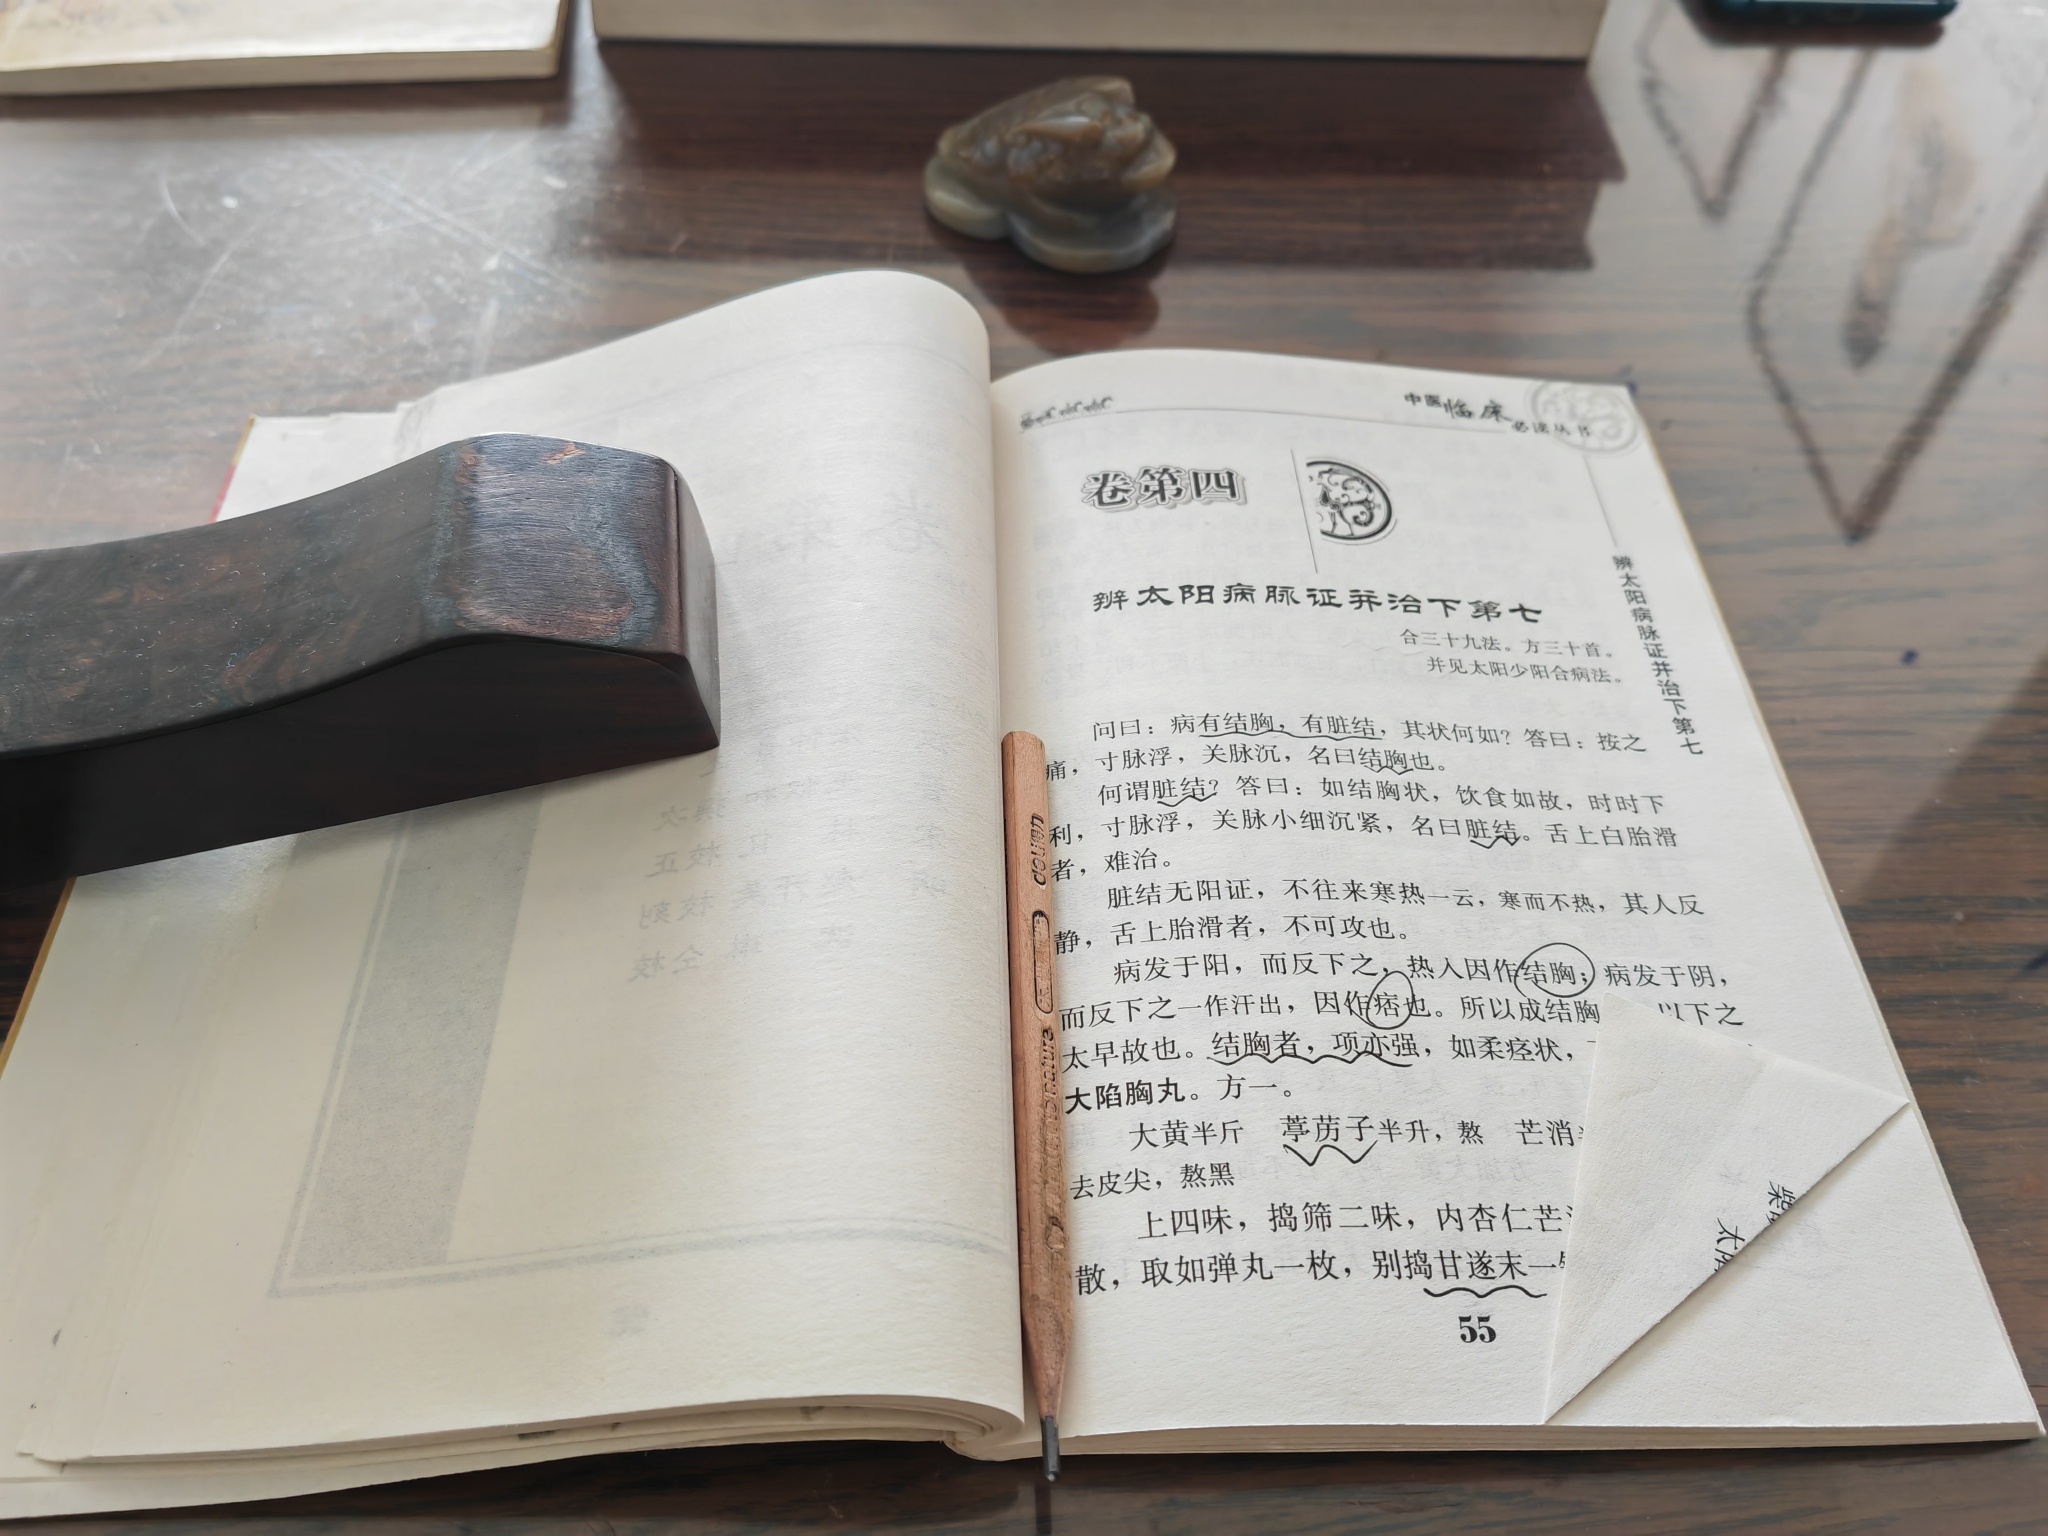 中医临床
必读丛书
卷第四
辨太阳病脉证并治下第七
合三十九法。方三十首。
并见太阳少阳合病法。
辨太阳病脉证并治下第七
问曰：病有结胸，有脏结，其状何如？答曰：按之
痛，寸脉浮，关脉沉，名曰结胸也。
何谓脏结？答曰：如结胸状，饮食如故，时时下
利，寸脉浮，关脉小细沉紧，名曰脏结。舌上白胎滑
者，难治。
脏结无阳证，不往来寒热一云，寒而不热，其人反
静，舌上胎滑者，不可攻也。
病发于阳，而反下之，热入因作结胸；病发于阴，
而反下之一作汗出，因作痞也。所以成结胸 以下之
太早故也。结胸者，项亦强，如柔痉状，
大陷胸丸。方一。
大黄半斤 葶苈子半升，熬 芒消
去皮尖，熬黑
上四味，捣筛二味，内杏仁芒
散，取如弹丸一枚，别捣甘遂末一
55
太阳
deli
nature